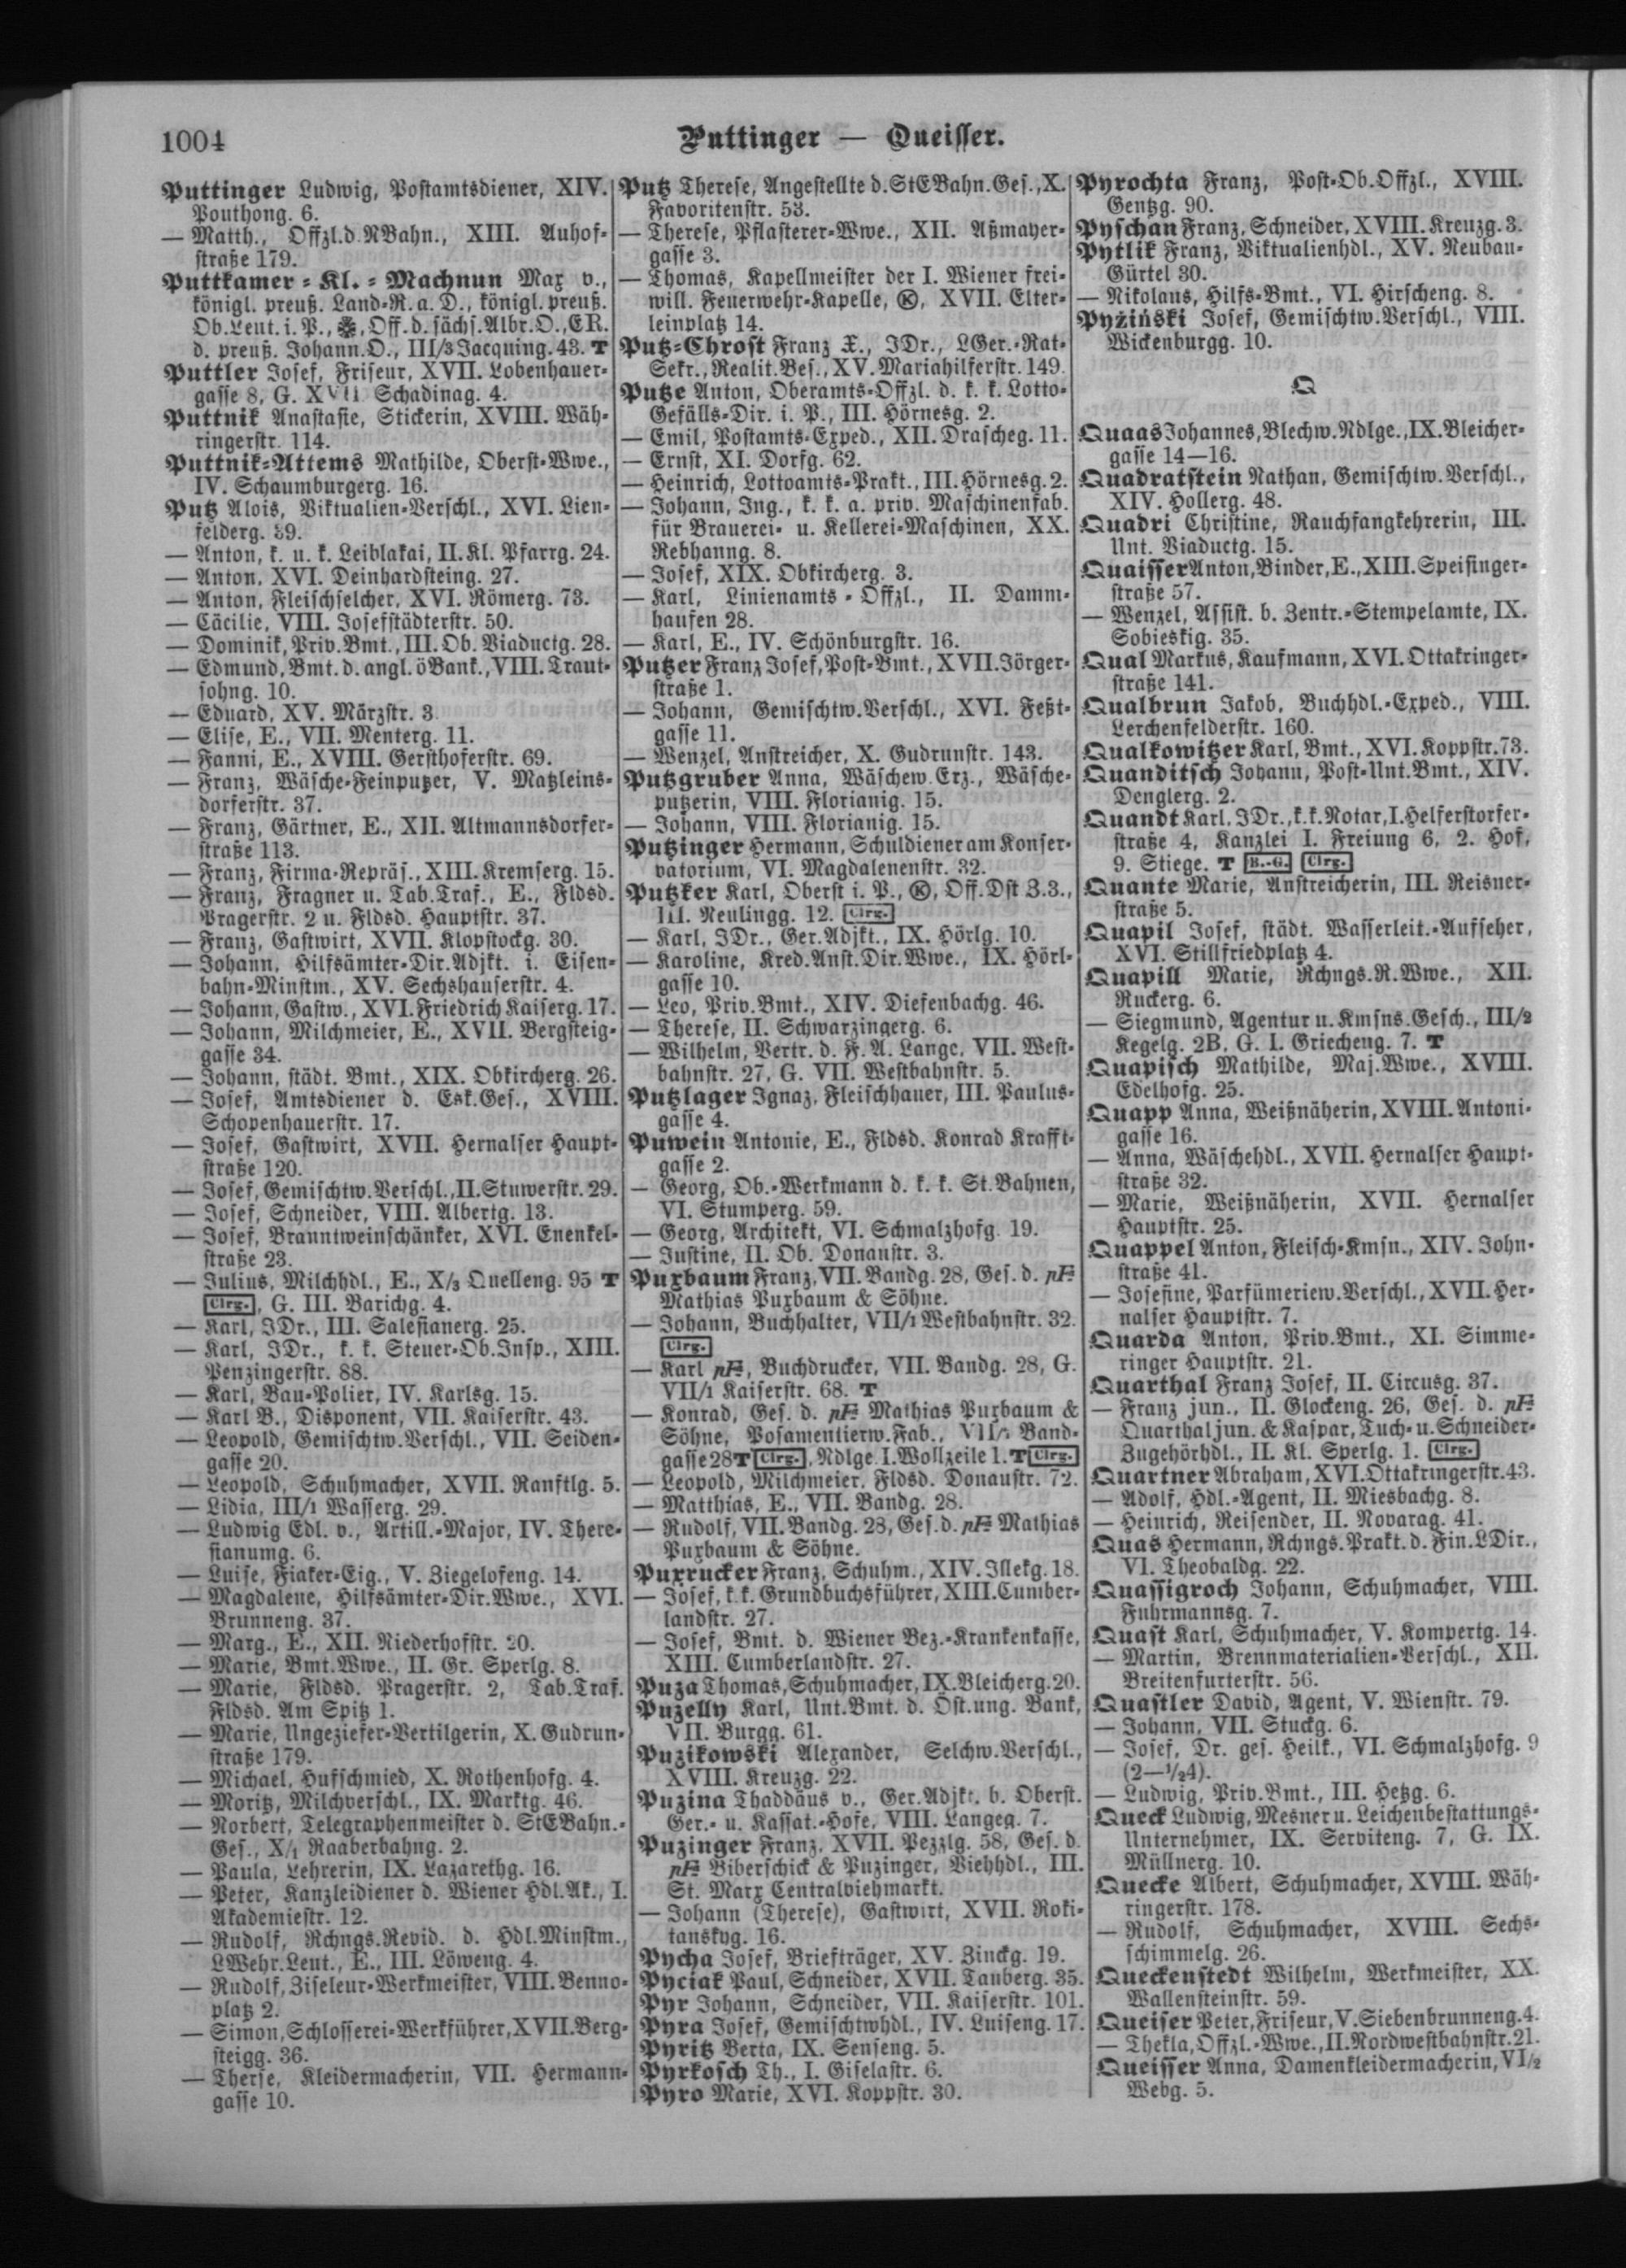 1004
Puttinger — Queisser.
Puttinger Ludwig, Postamtsdiener, XIV.
Pouthong. 6.
— Matth., Offzl.d.NBahn., XIII. Auhof-
straße 179.
Puttkamer-Kl.-Machnun Max v.,
königl. preuß. Land-R. a. D., königl. preuß.
Ob.Leut. i. P., Off. d. sächs. Albr.O., ER.
d. preuß. Johann.O., III/3 Jacquing. 43. T
Puttler Josef, Friseur, XVII. Lobenhauer-
gasse 8, G. XVII Schadinag. 4.
Puttnik Anastasie, Stickerin, XVIII. Wäh-
ringerstr. 114.
Puttnik-Attems Mathilde, Oberst-Wwe.,
IV. Schaumburgerg. 16.
Putz Alois, Viktualien-Verschl., XVI. Lien-
felderg. 39.
— Anton, k. u. k. Leiblakai, II. Kl. Pfarrg. 24.
— Anton, XVI. Deinhardsteing. 27.
— Anton, Fleischselcher, XVI. Römerg. 73.
— Cäcilie, VIII. Josefstädterstr. 50.
— Dominik, Priv.Bmt., III. Ob. Viaductg. 28.
— Edmund, Bmt. d. angl. öBank., VIII. Traut-
sohng. 10.
— Eduard, XV. Märzstr. 3
— Elise, E., VII. Menterg. 11.
— Fanni, E., XVIII. Gersthoferstr. 69.
— Franz, Wäsche-Feinputzer, V. Matzleins-
dorferstr. 37.
— Franz, Gärtner, E., XII. Altmannsdorfer-
straße 113.
— Franz, Firma-Repräs., XIII. Kremserg. 15.
— Franz, Fragner u. Tab.Traf., E., Fldsd.
Pragerstr. 2 u. Fldsd. Hauptstr. 37.
— Franz, Gastwirt, XVII. Klopstockg. 30.
— Johann, Hilfsämter-Dir.Adjkt. i. Eisen-
bahn-Minstm., XV. Sechshauserstr. 4.
— Johann, Gastw., XVI. Friedrich Kaiserg. 17.
— Johann, Milchmeier, E., XVII. Bergsteig-
gasse 34.
— Johann, städt. Bmt., XIX. Obkircherg. 26.
— Josef, Amtsdiener d. Esk.Ges., XVIII.
Schopenhauerstr. 17.
— Josef, Gastwirt, XVII. Hernalser Haupt-
straße 120.
— Josef, Gemischtw.Verschl., II. Stuwerstr. 29.
— Josef, Schneider, VIII. Albertg. 13.
— Josef, Branntweinschänker, XVI. Enenkel-
straße 23.
— Julius, Milchhdl., E., X/3 Quelleng. 95 T
Clrg., G. III. Barichg. 4.
— Karl, JDr., III. Salesianerg. 25.
— Karl, JDr., k. k. Steuer-Ob.Insp., XIII.
Penzingerstr. 88.
— Karl, Bau-Polier, IV. Karlsg. 15.
— Karl B., Disponent, VII. Kaiserstr. 43.
— Leopold, Gemischtw.Verschl., VII. Seiden-
gasse 20.
— Leopold, Schuhmacher, XVII. Ranftlg. 5.
— Lidia, III/1 Wasserg. 29.
— Ludwig Edl. v., Artill.-Major, IV. There-
sianumg. 6.
— Luise, Fiaker-Eig., V. Ziegelofeng. 14.
— Magdalene, Hilfsämter-Dir.Wwe., XVI.
Brunneng. 37.
— Marg., E., XII. Niederhofstr. 20.
— Marie, Bmt.Wwe., II. Gr. Sperlg. 8.
— Marie, Fldsd. Pragerstr. 2, Tab.Traf.
Fldsd. Am Spitz 1.
— Marie, Ungeziefer-Vertilgerin, X. Gudrun-
straße 179.
— Michael, Hufschmied, X. Rothenhofg. 4.
— Moritz, Milchverschl., IX. Marktg. 46.
— Norbert, Telegraphenmeister d. StEBahn.-
Ges., X/1 Raaberbahng. 2.
— Paula, Lehrerin, IX. Lazarethg. 16.
— Peter, Kanzleidiener d. Wiener Hdl.Ak., I.
Akademiestr. 12.
— Rudolf, Rchngs.Revid. d. Hdl.Minstm.,
LWehr.Leut., E., III. Löweng. 4.
— Rudolf, Ziseleur-Werkmeister, VIII. Benno-
platz 2.
— Simon, Schlosserei-Werkführer, XVII. Berg-
steigg. 36.
— Therse, Kleidermacherin, VII. Hermann-
gasse 10.
Putz Therese, Angestellte d. StEBahn.Ges., X.
Favoritenstr. 53.
— Therese, Pflasterer-Wwe., XII. Aßmayer-
gasse 3.
— Thomas, Kapellmeister der I. Wiener frei-
will. Feuerwehr-Kapelle, Ⓚ, XVII. Elter-
leinplatz 14.
Putz-Chrost Franz X., JDr., LGer.-Rat-
Sekr., Realit.Bes., XV. Mariahilferstr. 149.
Putze Anton, Oberamts-Offzl. d. k. k. Lotto-
Gefälls-Dir. i. P., III. Hörnesg. 2.
— Emil, Postamts-Exped., XII. Drascheg. 11.
— Ernst, XI. Dorfg. 62.
— Heinrich, Lottoamts-Prakt., III. Hörnesg. 2.
— Johann, Ing., k. k. a. priv. Maschinenfab.
für Brauerei- u. Kellerei-Maschinen, XX.
Rebhanng. 8.
— Josef, XIX. Obkircherg. 3.
— Karl, Linienamts-Offzl., II. Damm-
haufen 28.
— Karl, E., IV. Schönburgstr. 16.
Putzer Franz Josef, Post-Bmt., XVII. Jörger-
straße 1.
— Johann, Gemischtw.Verschl., XVI. Feßt-
gasse 11.
— Wenzel, Anstreicher, X. Gudrunstr. 143.
Putzgruber Anna, Wäschew.Erz., Wäsche-
putzerin, VIII. Florianig. 15.
— Johann, VIII. Florianig. 15.
Putzinger Hermann, Schuldiener am Konser-
vatorium, VI. Magdalenenstr. 32.
Putzker Karl, Oberst i. P., Ⓚ, Off.Dst Z.3.,
III. Neulingg. 12. Clrg.
— Karl, JDr., Ger.Adjkt., IX. Hörlg. 10.
— Karoline, Kred.Anst.Dir.Wwe., IX. Hörl-
gasse 10.
— Leo, Priv.Bmt., XIV. Diefenbachg. 46.
— Therese, II. Schwarzingerg. 6.
— Wilhelm, Vertr. d. F. A. Lange, VII. West-
bahnstr. 27, G. VII. Westbahnstr. 5.
Putzlager Ignaz, Fleischhauer, III. Paulus-
gasse 4.
Puwein Antonie, E., Fldsd. Konrad Krafft-
gasse 2.
— Georg, Ob.-Werkmann d. k. k. St.Bahnen,
VI. Stumperg. 59.
— Georg, Architekt, VI. Schmalzhofg. 19.
— Justine, II. Ob. Donaustr. 3.
Puxbaum Franz, VII. Bandg. 28, Ges. d. pF
Mathias Puxbaum & Söhne.
— Johann, Buchhalter, VII/1 Westbahnstr. 32.
Clrg.
— Karl pF, Buchdrucker, VII. Bandg. 28, G.
VII/1 Kaiserstr. 68. T
— Konrad, Ges. d. pF Mathias Puxbaum &
Söhne, Posamentierw.Fab., VII/ Band-
gasse 28 T Clrg., Ndlge. I. Wollzeile 1. T Clrg.
— Leopold, Milchmeier, Fldsd. Donaustr. 72.
— Matthias, E., VII. Bandg. 28.
— Rudolf, VII. Bandg. 28, Ges. d. pF Mathias
Puxbaum & Söhne.
Puxrucker Franz, Schuhm., XIV. Illekg. 18.
— Josef, k. k. Grundbuchsführer, XIII. Cumber-
landstr. 27.
— Josef, Bmt. d. Wiener Bez.-Krankenkasse,
XIII. Cumberlandstr. 27.
Puza Thomas, Schuhmacher, IX. Bleicherg. 20.
Puzelly Karl, Unt.Bmt. d. Öst.ung. Bank,
VII. Burgg. 61.
Puzikowski Alexander, Selchw.Verschl.,
XVIII. Kreuzg. 22.
Puzina Thaddäus v., Ger.Adjkt. b. Oberst.
Ger.- u. Kassat.-Hofe, VIII. Langeg. 7.
Puzinger Franz, XVII. Pezzlg. 58, Ges. d.
pF Biberschick & Puzinger, Viehhdl., III.
St. Marx Centralviehmarkt.
— Johann (Therese), Gastwirt, XVII. Roki-
tanskyg. 16.
Pycha Josef, Briefträger, XV. Zinckg. 19.
Pyciak Paul, Schneider, XVII. Tauberg. 35.
Pyr Johann, Schneider, VII. Kaiserstr. 101.
Pyra Josef, Gemischtwhdl., IV. Luiseng. 17.
Pyritz Berta, IX. Senseng. 5.
Pyrkosch Th., I. Giselastr. 6.
Pyro Marie, XVI. Koppstr. 30.
Pyrochta Franz, Post-Ob.Offzl., XVIII.
Gentzg. 90.
Pyschan Franz, Schneider, XVIII. Kreuzg. 3.
Pytlik Franz, Viktualienhdl., XV. Neubau-
Gürtel 30.
— Nikolaus, Hilfs-Bmt., VI. Hirscheng. 8.
Pyžiński Josef, Gemischtw.Verschl., VIII.
Wickenburgg. 10.
Q
Quaas Johannes, Blechw.Ndlge., IX. Bleicher-
gasse 14—16.
Quadratstein Nathan, Gemischtw.Verschl.,
XIV. Hollerg. 48.
Quadri Christine, Rauchfangkehrerin, III.
Unt. Viaductg. 15.
Quaisser Anton, Binder, E., XIII. Speisinger-
straße 57.
— Wenzel, Assist. b. Zentr.-Stempelamte, IX.
Sobieskig. 35.
Qual Markus, Kaufmann, XVI. Ottakringer-
straße 141.
Qualbrun Jakob, Buchhdl.-Exped., VIII.
Lerchenfelderstr. 160.
Qualkowitzer Karl, Bmt., XVI. Koppstr. 73.
Quanditsch Johann, Post-Unt.Bmt., XIV.
Denglerg. 2.
Quandt Karl, JDr., k. k. Notar, I. Helferstorfer-
straße 4, Kanzlei I. Freiung 6, 2. Hof,
9. Stiege. T B.-G. Clrg.
Quante Marie, Anstreicherin, III. Reisner-
straße 5.
Quapil Josef, städt. Wasserleit.-Aufseher,
XVI. Stillfriedplatz 4.
Quapill Marie, Rchngs.R.Wwe., XII.
Ruckerg. 6.
— Siegmund, Agentur u. Kmsns.Gesch., III/2
Kegelg. 2B, G. I. Griecheng. 7. T
Quapisch Mathilde, Maj.Wwe., XVIII.
Edelhofg. 25.
Quapp Anna, Weißnäherin, XVIII. Antoni-
gasse 16.
— Anna, Wäschehdl., XVII. Hernalser Haupt-
straße 32.
— Marie, Weißnäherin, XVII. Hernalser
Hauptstr. 25.
Quappel Anton, Fleisch-Kmsn., XIV. John-
straße 41.
— Josefine, Parfümeriew.Verschl., XVII. Her-
nalser Hauptstr. 7.
Quarda Anton, Priv.Bmt., XI. Simme-
ringer Hauptstr. 21.
Quarthal Franz Josef, II. Circusg. 37.
— Franz jun., II. Glockeng. 26, Ges. d. pF
Quarthal jun. & Kaspar, Tuch- u. Schneider-
Zugehörhdl., II. Kl. Sperlg. 1. Clrg.
Quartner Abraham, XVI. Ottakringerstr. 43.
— Adolf, Hdl.-Agent, II. Miesbachg. 8.
— Heinrich, Reisender, II. Novarag. 41.
Quas Hermann, Rchngs.Prakt. d. Fin.LDir.,
VI. Theobaldg. 22.
Quassigroch Johann, Schuhmacher, VIII.
Fuhrmannsg. 7.
Quast Karl, Schuhmacher, V. Kompertg. 14.
— Martin, Brennmaterialien-Verschl., XII.
Breitenfurterstr. 56.
Quastler David, Agent, V. Wienstr. 79.
— Johann, VII. Stuckg. 6.
— Josef, Dr. ges. Heilk., VI. Schmalzhofg. 9
(2—½4).
— Ludwig, Priv.Bmt., III. Hetzg. 6.
Queck Ludwig, Mesner u. Leichenbestattungs-
Unternehmer, IX. Serviteng. 7, G. IX.
Müllnerg. 10.
Quecke Albert, Schuhmacher, XVIII. Wäh-
ringerstr. 178.
— Rudolf, Schuhmacher, XVIII. Sechs-
schimmelg. 26.
Queckenstedt Wilhelm, Werkmeister, XX.
Wallensteinstr. 59.
Queiser Peter, Friseur, V. Siebenbrunneng. 4.
— Thekla, Offzl.-Wwe., II. Nordwestbahnstr. 21.
Queisser Anna, Damenkleidermacherin, VI/2
Webg. 5.